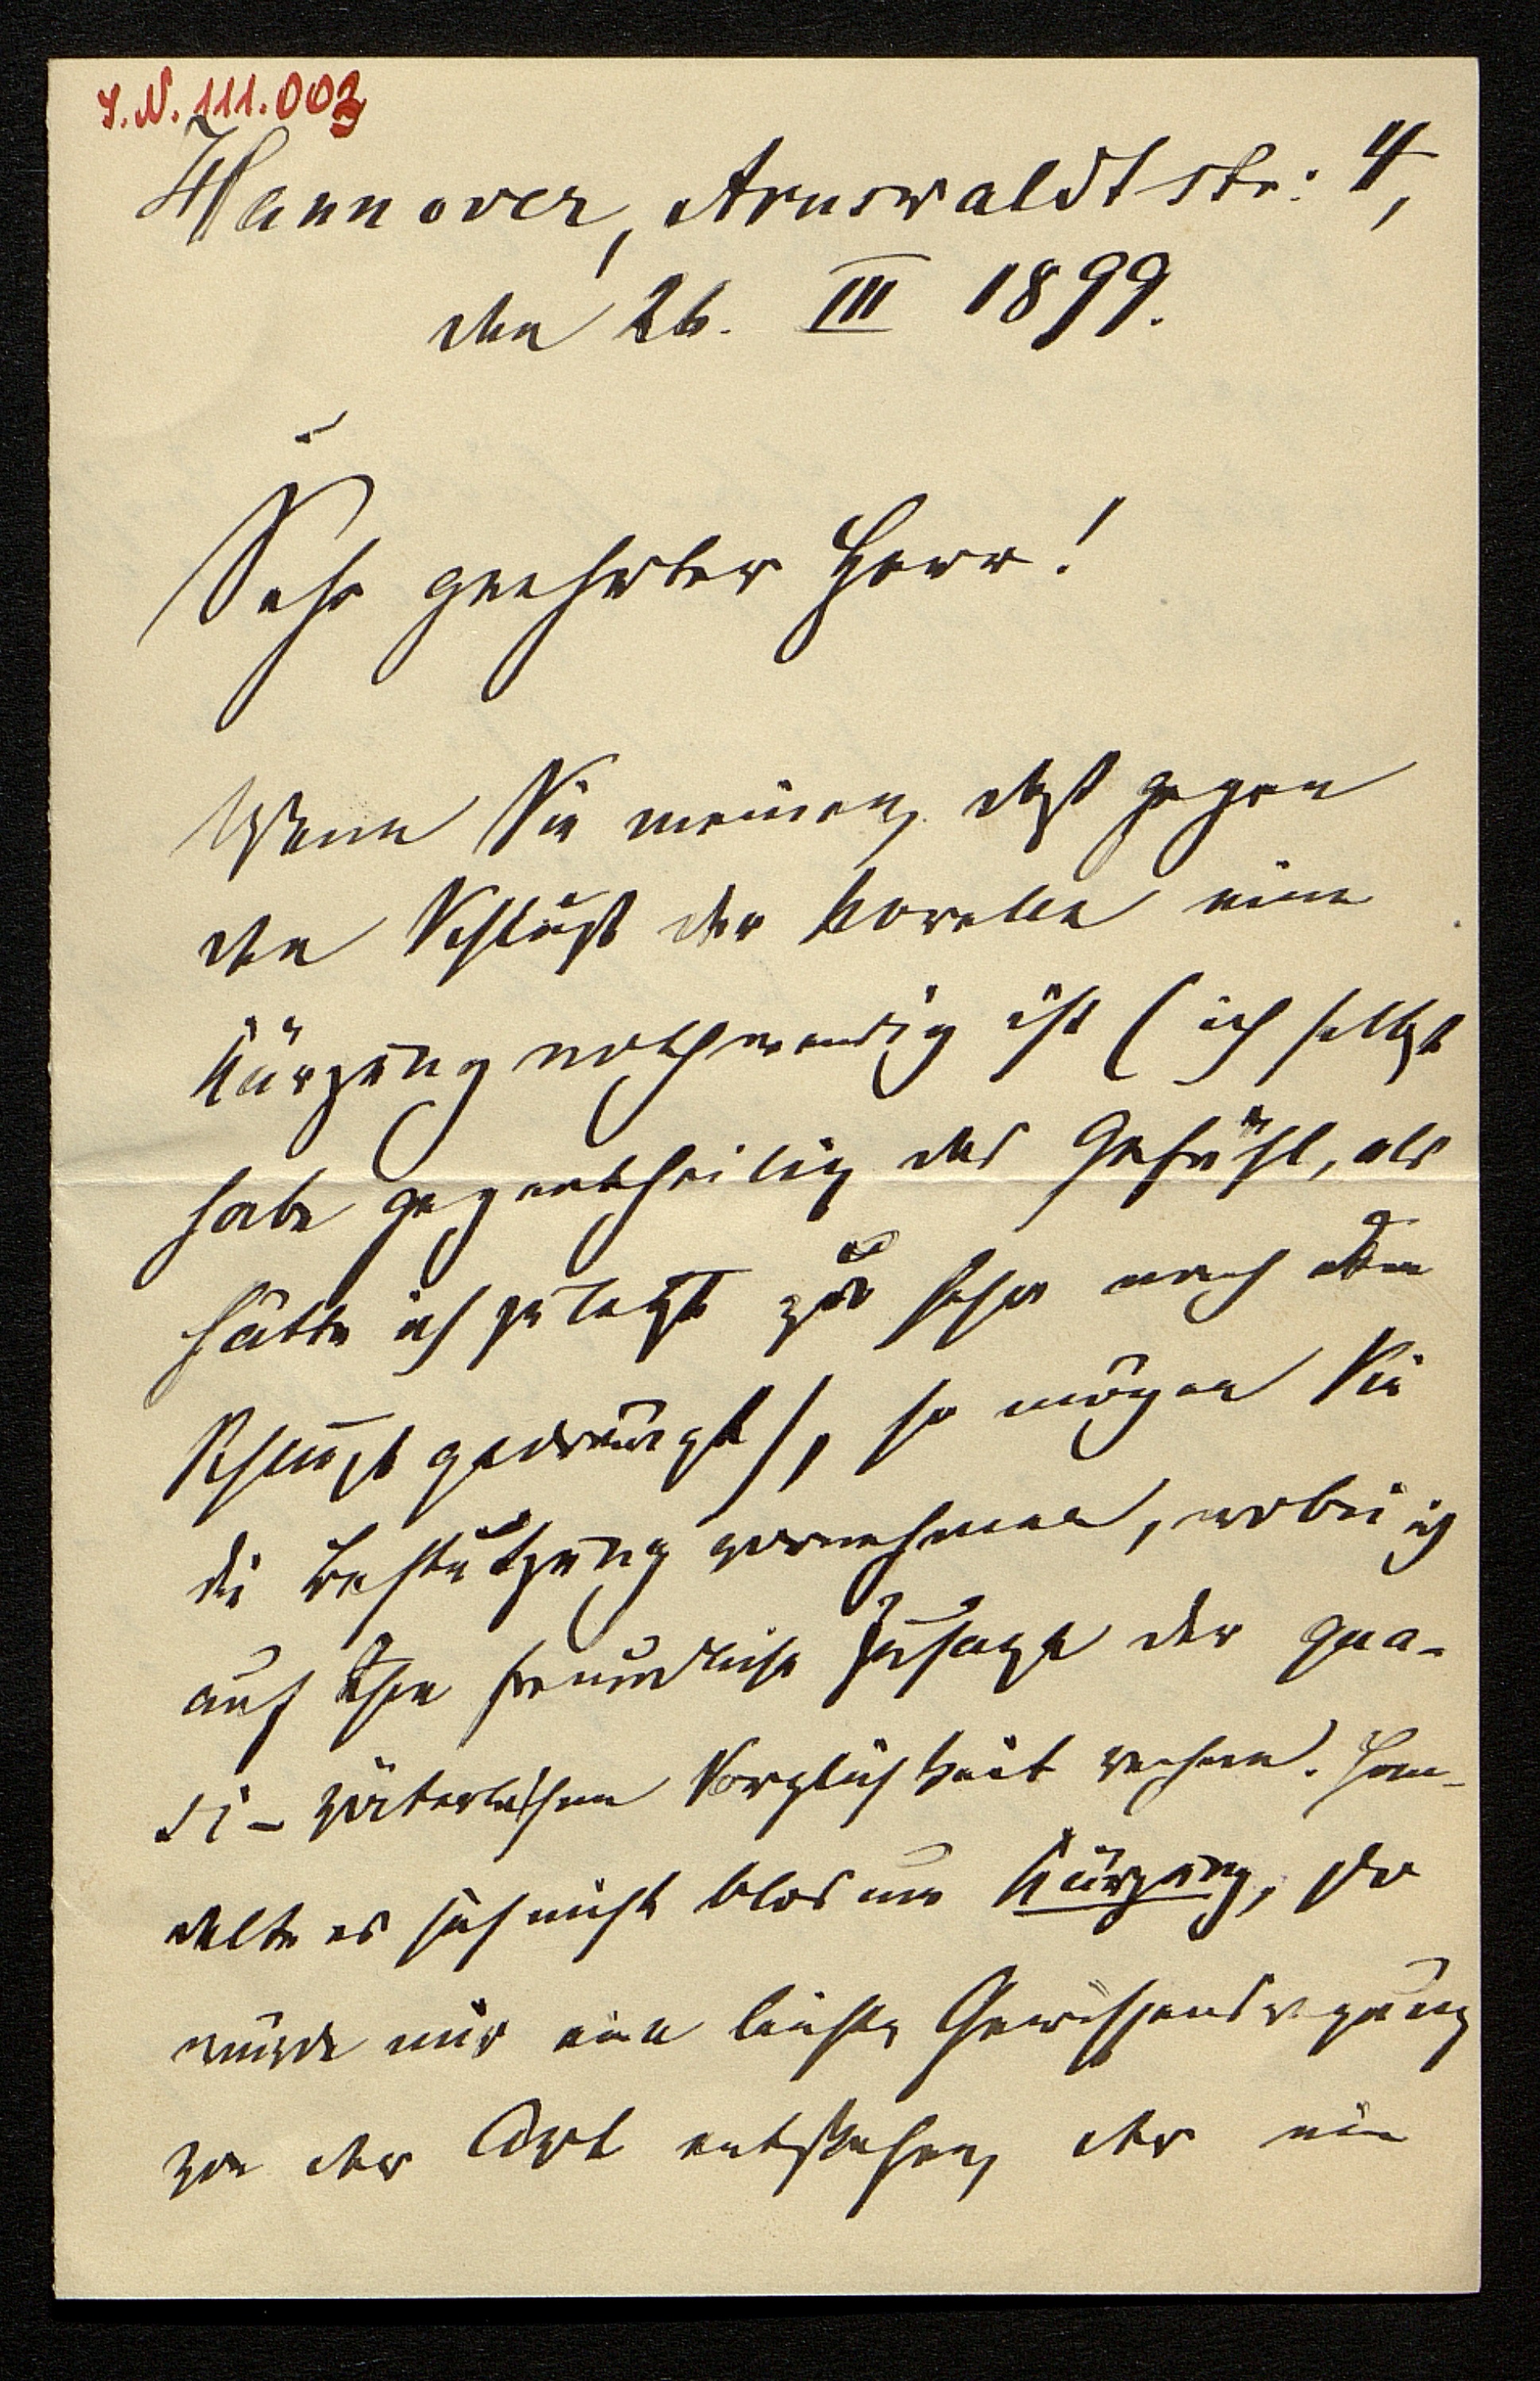 I.N. 111.003
Hannover, Arnswaldtstr: 4,
den 26. III 1899.
Sehr geehrter Herr!
Wenn Sie meinen, daß gegen
den Schluß der Novelle eine
Kürzung nothwendig ist (ich selbst
habe gegentheilig das Gefühl, als
hätte ich zuletzt zu sehr nach dem
Schluß gedrängt), so mögen Sie
die vornehmen, wobei ich
auf Ihre freundliche Zusage der qua-
si-väterlichen Sorglichkeit rechne. Han-
delte es sich nicht blos um Kürzung, so
würde mir eine leichte Gewissensregung
von der Art entstehen, der ein